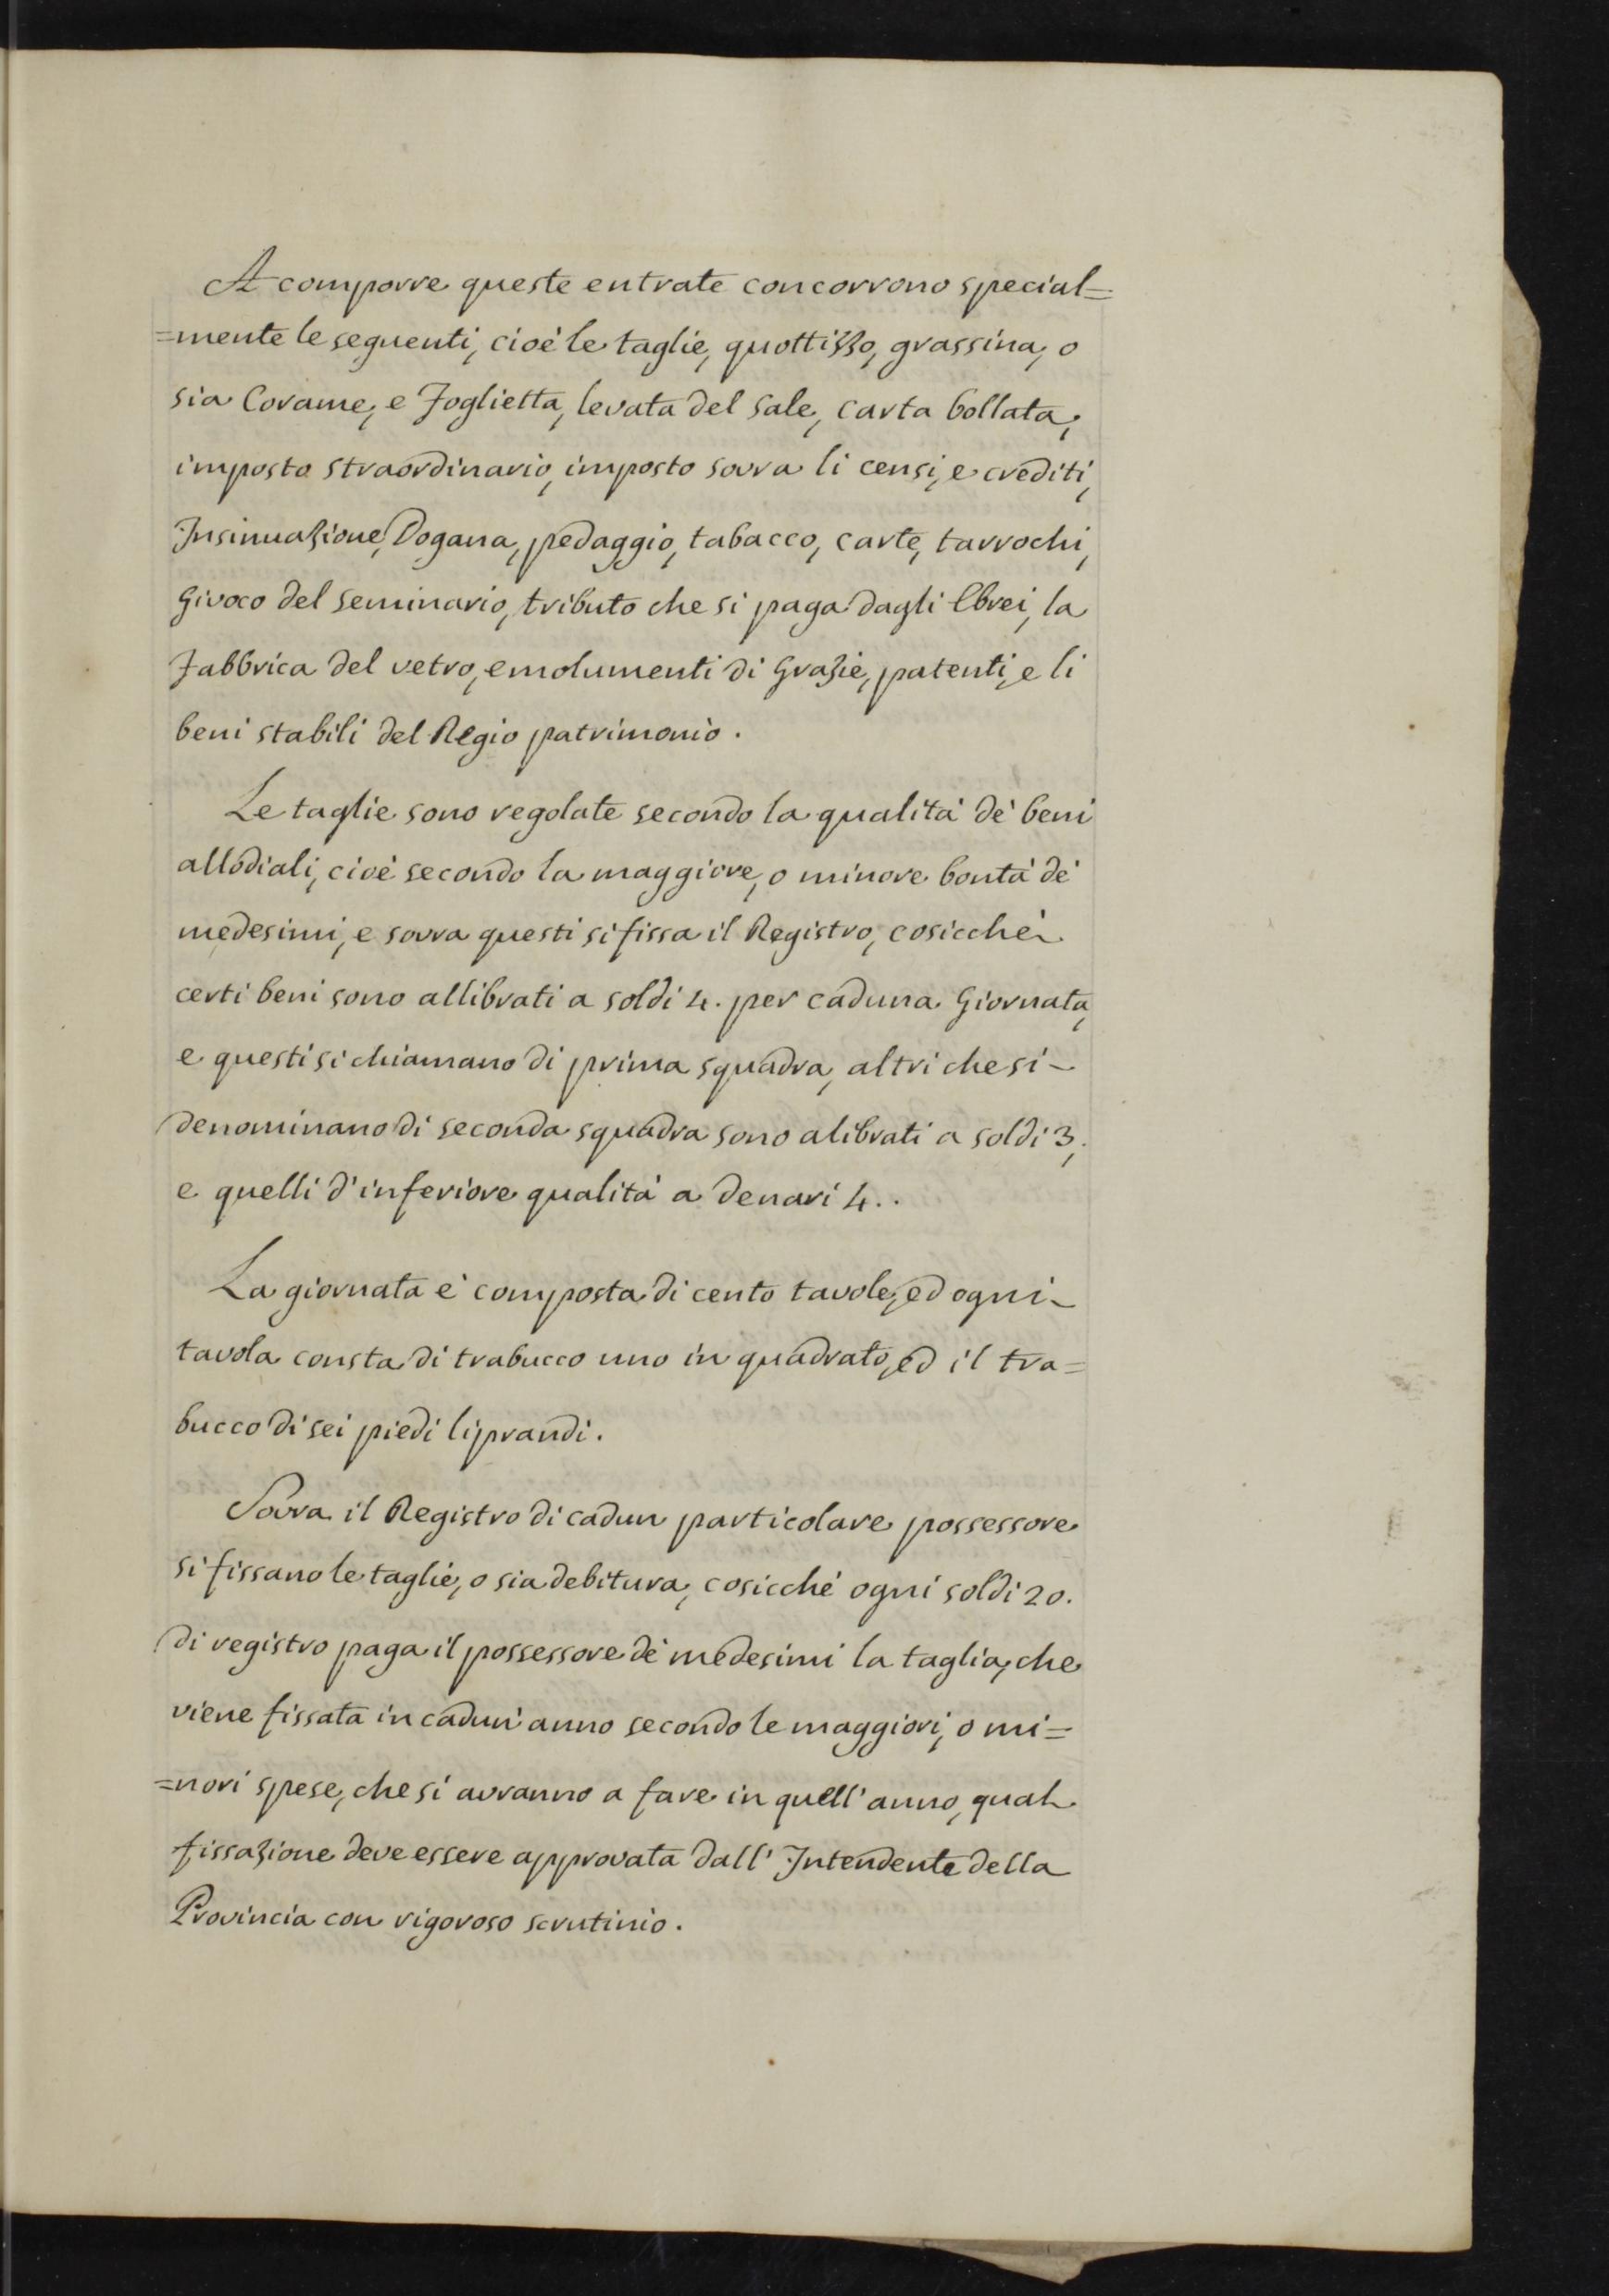 A comporre queste entrate concorrono special=
=mente le seguenti, cioè le taglie, quottizzo, grassina, o
sia Corame, e Foglietta, levata del sale, carta bollata,
imposto straordinario, imposto sovra li censi, e crediti,
Insinuazione, Dogana, pedaggio, tabacco, carte, tarrochi,
Givoco del Seminario, tributo che si paga dagli Ebrei, la
Fabbrica del vetro, emolumenti di Grazie, patenti, e li
beni stabili del Regio patrimonio.
Le taglie sono regolate secondo la qualità de' beni
allodiali, cioè secondo la maggiore, o minore bontà de'
medesimi, e sovra questi si fissa il Registro, cosicchè
certi beni sono allibrati a soldi 4. per caduna Giornata,
e questi si chiamano di prima squadra, altri che si
denominano di seconda squadra sono alibrati a soldi 3,
e quelli d'inferiore qualità a denari 4..
La giornata è composta di cento tavole, ed ogni
tavola consta di trabucco uno in quadrato, ed il tra=
bucco di sei piedi liprandi.
Sovra il Registro di cadun particolare possessore
si fissano le taglie, o sia debitura, cosicché ogni soldi 20.
di registro paga il possessore de' medesimi la taglia, che
viene fissata in cadun' anno secondo le maggiori, o mi=
=nori spese, che si avranno a fare in quell'anno, qual
fissazione deve essere approvata dall'Intendente della
Provincia con rigoroso scrutinio.